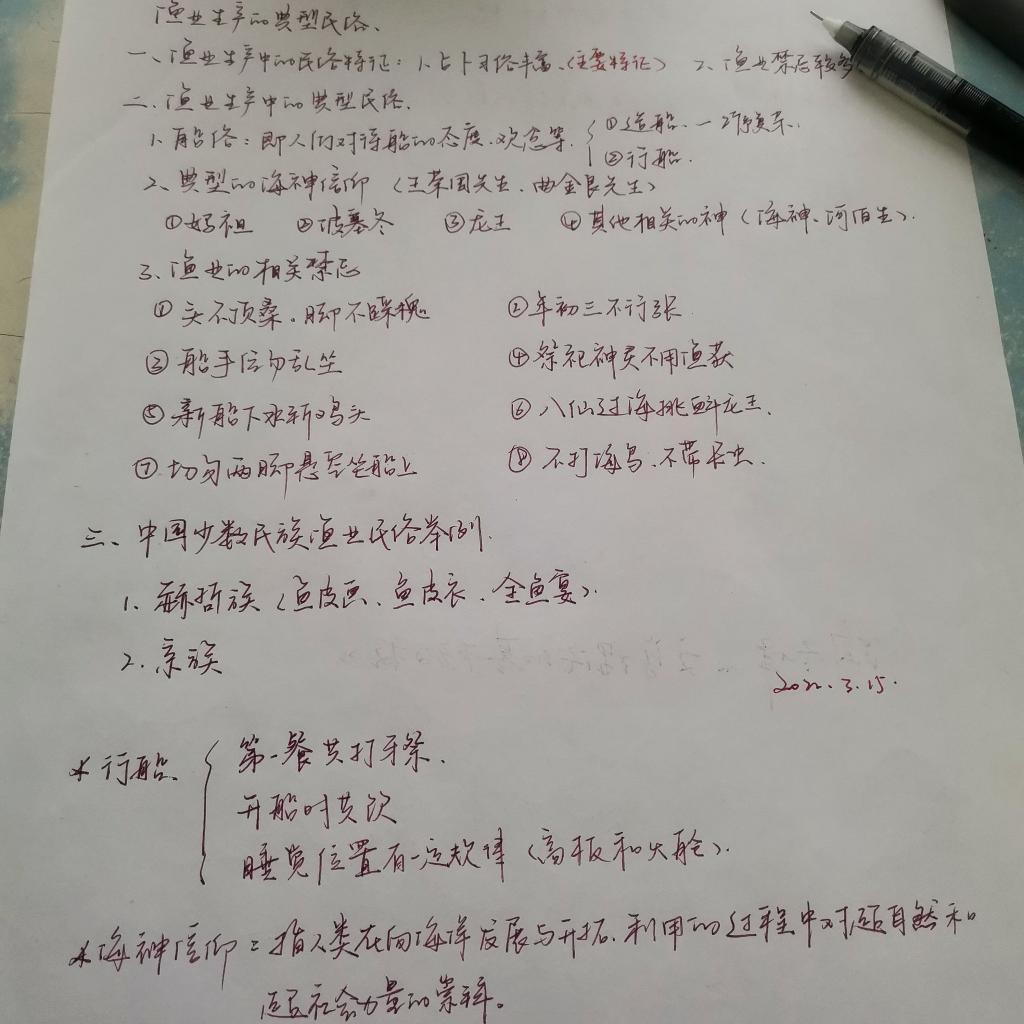 渔业生产的典型民俗.
一、渔业生产中的民俗特征：1、占卜习俗丰富.（主要特征） 2、渔业禁忌较多
二、渔业生产中的典型民俗.
1、船俗：即人们对待船的态度、观念等. ①造船.
②行船.
2、典型的海神信仰（王荣国先生、曲金良先生）
①妈祖 ③龙王 ④其他相关的神（海神、河伯生）.
3、渔业的相关禁忌
①头不顶桑、脚不踩槐 ②年初三不行张
③船手位勿乱坐 ④祭祀神灵不用渔获
⑤新船下水斩鸡头 ⑥八仙过海挑衅龙王.
⑦切勿两脚悬空坐船上 ⑧不打海鸟.不带长虫.
三、中国少数民族渔业民俗举例.
1、赫哲族（鱼皮画、鱼皮衣、全鱼宴）.
2、京族
2022.3.15.
*行船. 第一餐共打牙祭.
开船时共饮
睡觉位置有一定规律（高板和火舱）.
*海神信仰：指人类在向海洋发展与开拓、利用的过程中对超自然和
超社会力量的崇拜。